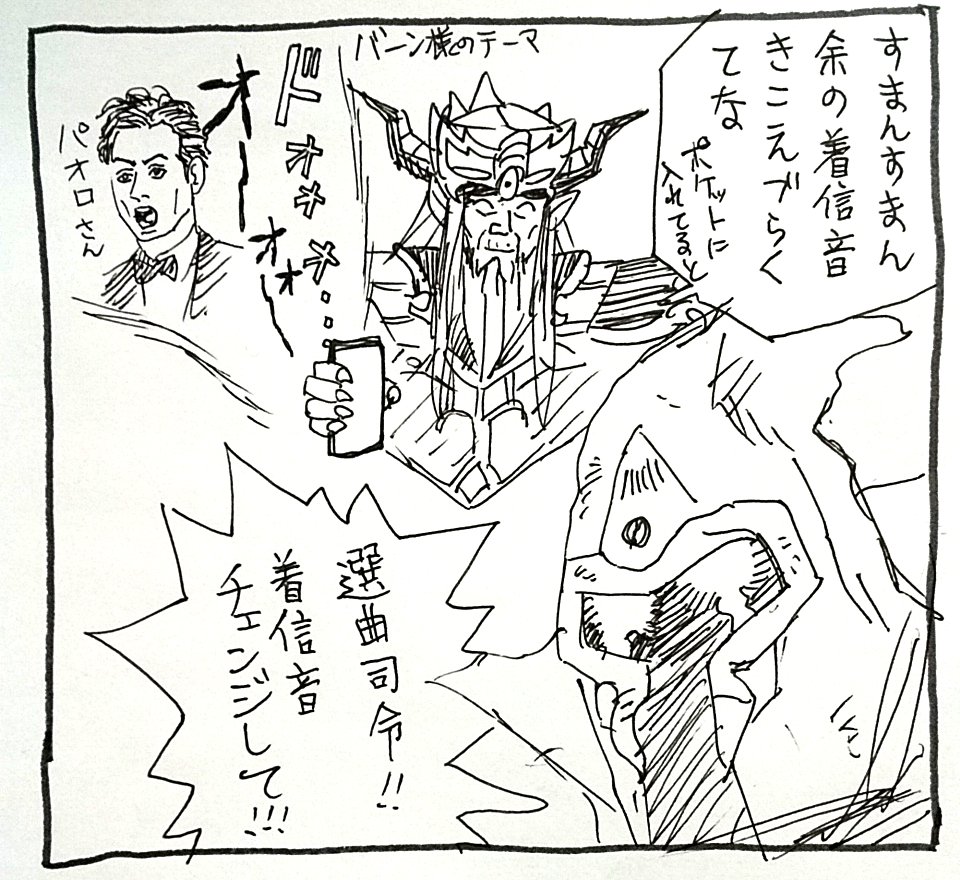 すまんすまん
余の着信音
きこえづらく
てな
ポケットに
入れてると
バーン様のテーマ
ドォォォ…
オーーオオー
パオロさん
選曲司令!!
着信音
チェンジして!!!